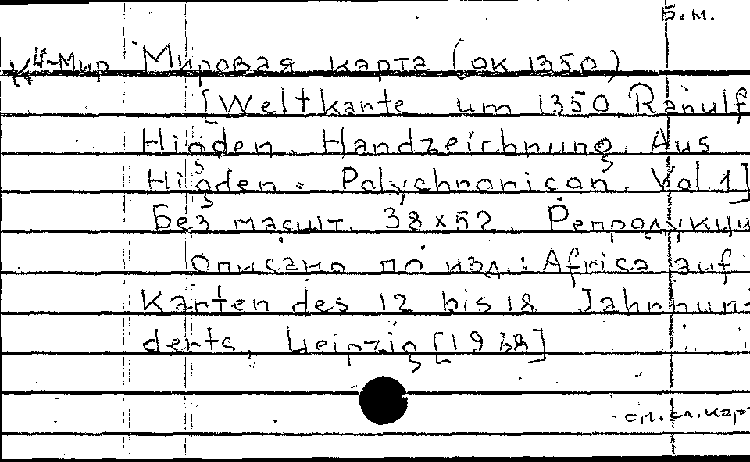 Б.м.
К4-Мир Мировая карта (ок 1350)
[Weltkarte um 1350 Ranulf
Higden. Handzeichnung. Aus
Higden. Polychronicon. Vol 1]
Без масшт. 38x52. Репродукци
Описано по изд.: Africa auf
Karten des 12 bis 18 Jahrhun-
derts. Leipzig [1968]
см. сл. кар